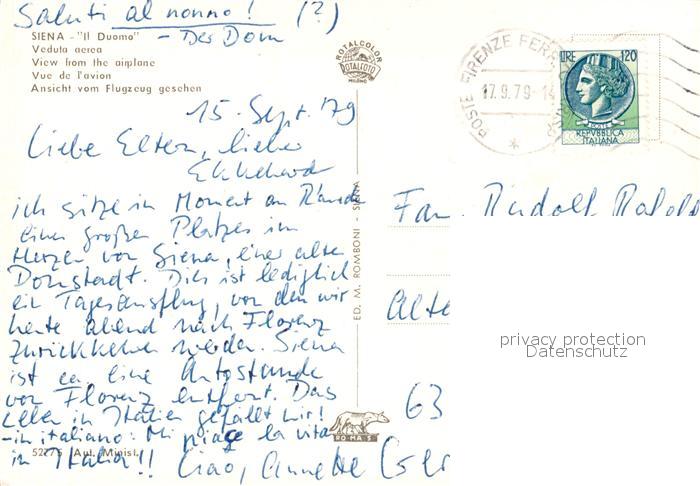 Saluti al nonno! (?)
SIENA - "Il Duomo" - Der Dom
Veduta aerea
View from the airplane
Vue de l'avion
Ansicht vom Flugzeug gesehen
ROTALCOLOR
ROTALFOTO
MILANO
POSTE FIRENZE FERR
17.9.79-14
LIRE 120
POSTE
REPVBBLICA
ITALIANA
15. Sept. '79
Liebe Eltern, lieber
Ekkehard
ich sitze im Moment am Rande
eines großen Platzes im
Herzen von Siena, einer alten
Domstadt. Dies ist lediglich
ein Tagesausflug, von dem wir
heute abend nach Florenz
zurückkehren werden. Siena
ist ca. eine Autostunde
von Florenz entfernt. Das
Leben in Italien gefällt mir!
- in italiano: Mi piace la vita
in Italia!! Ciao, Annette
52775 Aut. Minist.
ED. M. ROMBONI - SIENA
ROMA S
Fam. Rudolf
Alte
63
privacy protection
Datenschutz